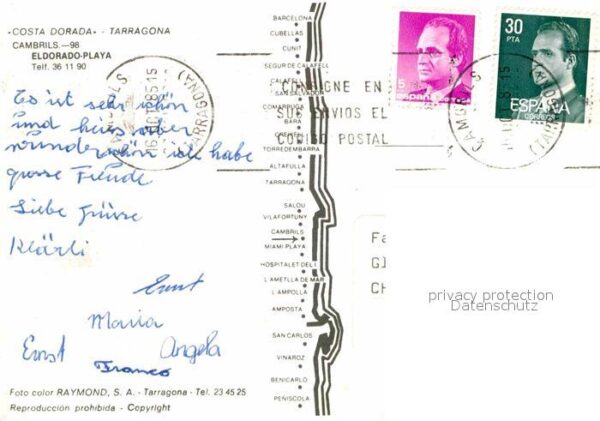 «COSTA DORADA» - TARRAGONA
CAMBRILS.—98
ELDORADO-PLAYA
Telf. 36 11 90
Es ist sehr schön
und heiss aber
wunderschön ich habe
grosse Freude
Liebe Grüsse
Klärli
Ernst
Maria
Ernst Angela
Franco
Foto color RAYMOND, S. A. - Tarragona - Tel. 23 45 25
Reproducción prohibida - Copyright
BARCELONA
CUBELLAS
CUNIT
SEGUR DE CALAFELL
CALAFELL
SAN SALVADOR
COMARRUGA
BARA
CREIXELL
TORREDEMBARRA
ALTAFULLA
TARRAGONA
SALOU
VILAFORTUNY
CAMBRILS
MIAMI PLAYA
HOSPITALET DEL I.
L'AMETLLA DE MAR
L'AMPOLLA
AMPOSTA
SAN CARLOS
VINAROZ
BENICARLO
PEÑISCOLA
CONSIGNE EN
SUS ENVIOS EL
CODIGO POSTAL
CAMBRILS
(TARRAGONA)
5
españa
30
PTA
ESPAÑA
CORREOS
CAMBRILS
Fa
GI
CH
privacy protection
Datenschutz